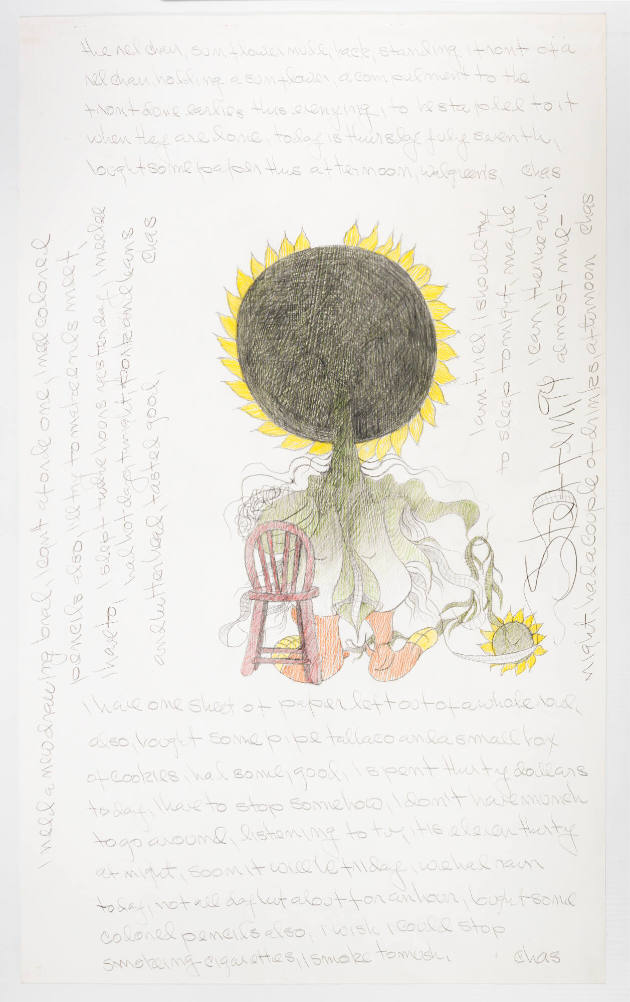 the red chair, sunflower nude, back, standing, front of a
red chair, holding a sunflower, a compliment to the
front done earlies this evenying, to be stapled to it
when they are done, today is thursday july seventh,
bought some paper this afternoon, walgreens, chas
I need a new drawing board, I cant afford one, I need colored
pencils also, I'll try to make ends meet,
I have to, I slept twelve hours yesterday, I needed
had hot dogs tonight, pork and beans
and butter bread, tasted good, chas
I am tired, I should try
to sleep tonight maybe
I can, there we are!,
almost mid-
night, had a couple of drinks, afternoon chas
I have one sheet of paper left out of a whole pad,
also, bought some pipe tabbaco and a small box
of cookies, had some, good, I spent thirty dollars
today, I have to stop somehow, I don't have munch
to go around, listening to tv, it is eleven thirty
at night, soon it will be friday, we had rain
today, not all day but about for an hour, bought some
colored pencils also, I wish I could stop
smokeing cigarettes, I smoke to mush. chas